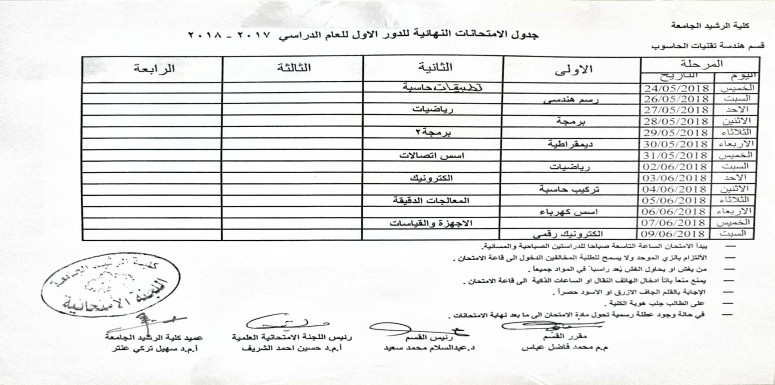 كلية الرشيد الجامعة
جدول الامتحانات النهائية للدور الاول للعام الدراسي ٢٠١٧ - ٢٠١٨
قسم هندسة تقنيات الحاسوب
المرحلة الاولى الثانية الثالثة الرابعة
اليوم التاريخ
الخميس 24/05/2018 تطبيقات حاسبة
السبت 26/05/2018 رسم هندسي
الاحد 27/05/2018 رياضيات
الاثنين 28/05/2018 برمجة
الثلاثاء 29/05/2018 برمجة٢
الاربعاء 30/05/2018 ديمقراطية
الخميس 31/05/2018 اسس اتصالات
السبت 02/06/2018 رياضيات
الاحد 03/06/2018 الكترونيك
الاثنين 04/06/2018 تركيب حاسبة
الثلاثاء 05/06/2018 المعالجات الدقيقة
الاربعاء 06/06/2018 اسس كهرباء
الخميس 07/06/2018 الاجهزة والقياسات
السبت 09/06/2018 الكترونيك رقمي
— يبدأ الأمتحان الساعة التاسعة صباحا للدراستين الصباحية والمسائية.
— الألتزام بالزي الموحد ولا يسمح للطلبة المخالفين الدخول الى قاعة الامتحان .
— من يغش او يحاول الغش يعد راسباً في المواد جميعاً .
— يمنع منعاً باتاً ادخال الهاتف النقال او الساعات الذكية الى قاعة الامتحان .
— الإجابة بالقلم الجاف الازرق او الاسود حصراً .
— على الطالب جلب هوية الكلية .
— في حالة وجود عطلة رسمية تحول مادة الامتحان الى ما بعد نهاية الامتحانات .
كلية الرشيد الجامعة
اللجنة الامتحانية
مقرر القسم رئيس القسم رئيس اللجنة الامتحانية العلمية عميد كلية الرشيد الجامعة
م.م محمد فاضل عباس د.عبدالسلام محمد سعيد أ.م.د حسين احمد الشريف أ.م.د سهيل تركي عنتر